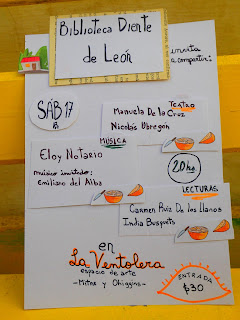 Biblioteca Diente
de León
invita
a compartir:
SÁB 17
TEATRO
Manuela De la Cruz
Nicolás Obregón
MÚSICA
Eloy Notario
músico invitado:
Emiliano del Alba
20hs
LECTURAS
Carmen Ruiz De los Llanos
India Busquets
en
La Ventolera
espacio de arte
-Mitre y Ohiggins-
ENTRADA
$30